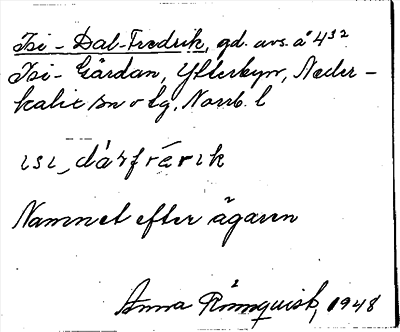 Isi-Dal-Fredrik, gd. avs. å 4³²
Isi-Gårdan, Ytterbyn, Neder-
kalix sn o tg, Norrb. l
ısı_dárfrǽrık
Namnet efter ägaren
Anna Rönnquist, 1948